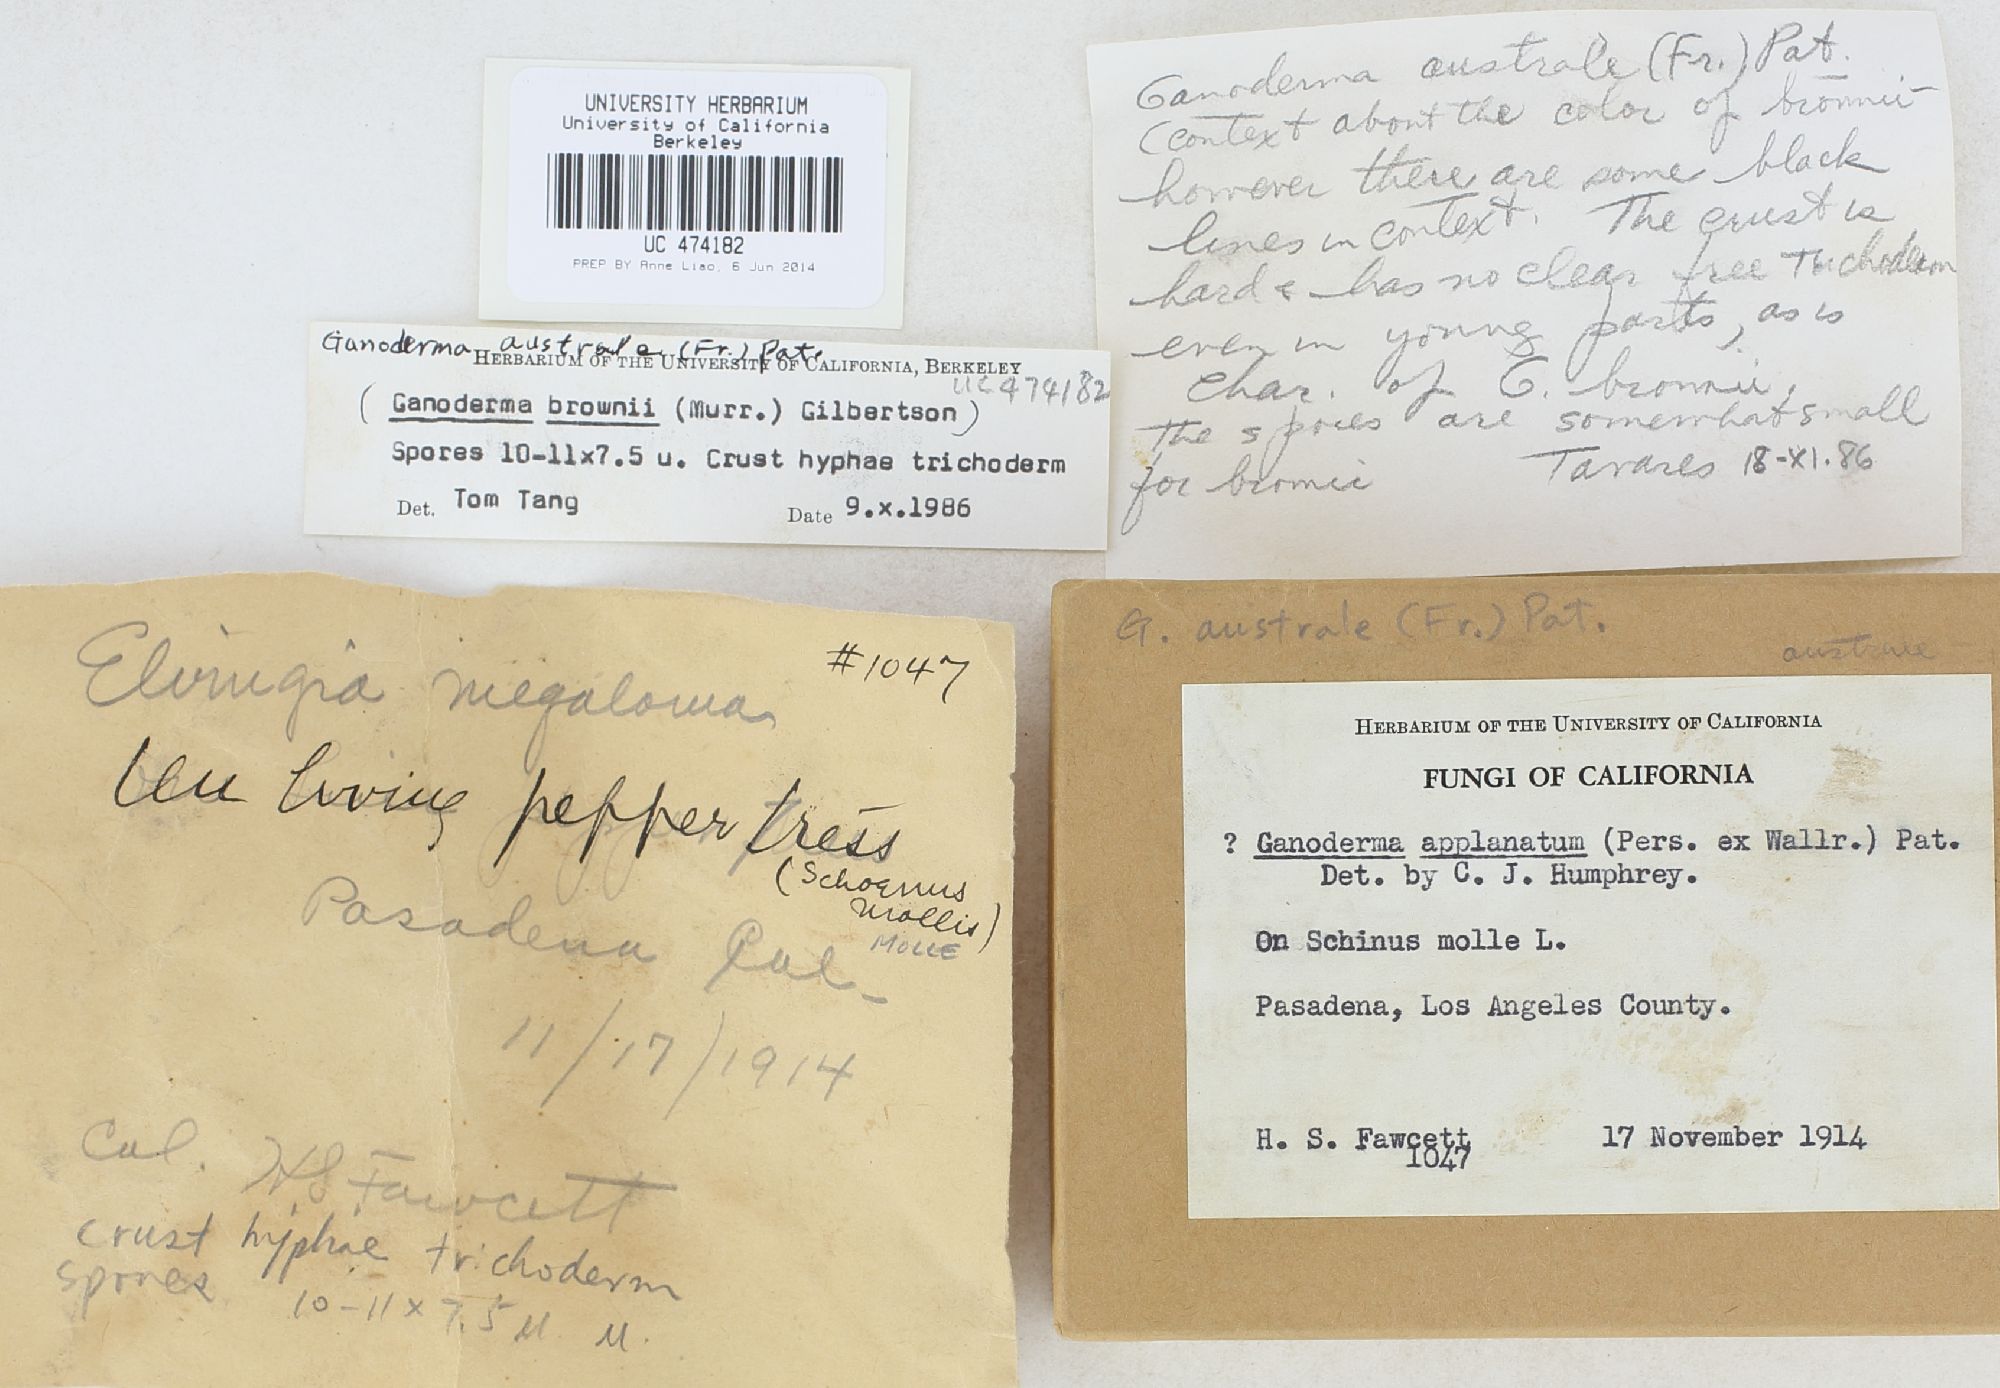 UNIVERSITY HERBARIUM
University of California
Berkeley
UC 474182
PREP BY Anne Liao, 6 Jun 2014
Ganoderma australe (Fr.) Pat.
HERBARIUM OF THE UNIVERSITY OF CALIFORNIA, BERKELEY
UC474182
(Ganoderma brownii (Murr.) Gilbertson)
Spores 10-11x7.5 u. Crust hyphae trichoderm
Det. Tom Tang
Date 9.x.1986
Ganoderma australe (Fr.) Pat.
(context about the color of brownii
however there are some black
lines in context. The crust is
hard & has no clear free Trichoderm
even in young parts, as is
char. of G. brownii.
The spores are somewhat small
for brownii
Tavares 18-XI.86
#1047
Elvingia megaloma
on living pepper trees
(Schoenus
mollis)
MOLLE
Pasadena Cal-
11/17/1914
Col. HS Fawcett
crust hyphae trichoderm
spores 10-11 x 7.5 µ. µ.
G. australe (Fr.) Pat.
australe
HERBARIUM OF THE UNIVERSITY OF CALIFORNIA
FUNGI OF CALIFORNIA
? Ganoderma applanatum (Pers. ex Wallr.) Pat.
Det. by C. J. Humphrey.
On Schinus molle L.
Pasadena, Los Angeles County.
H. S. Fawcett 17 November 1914
1047